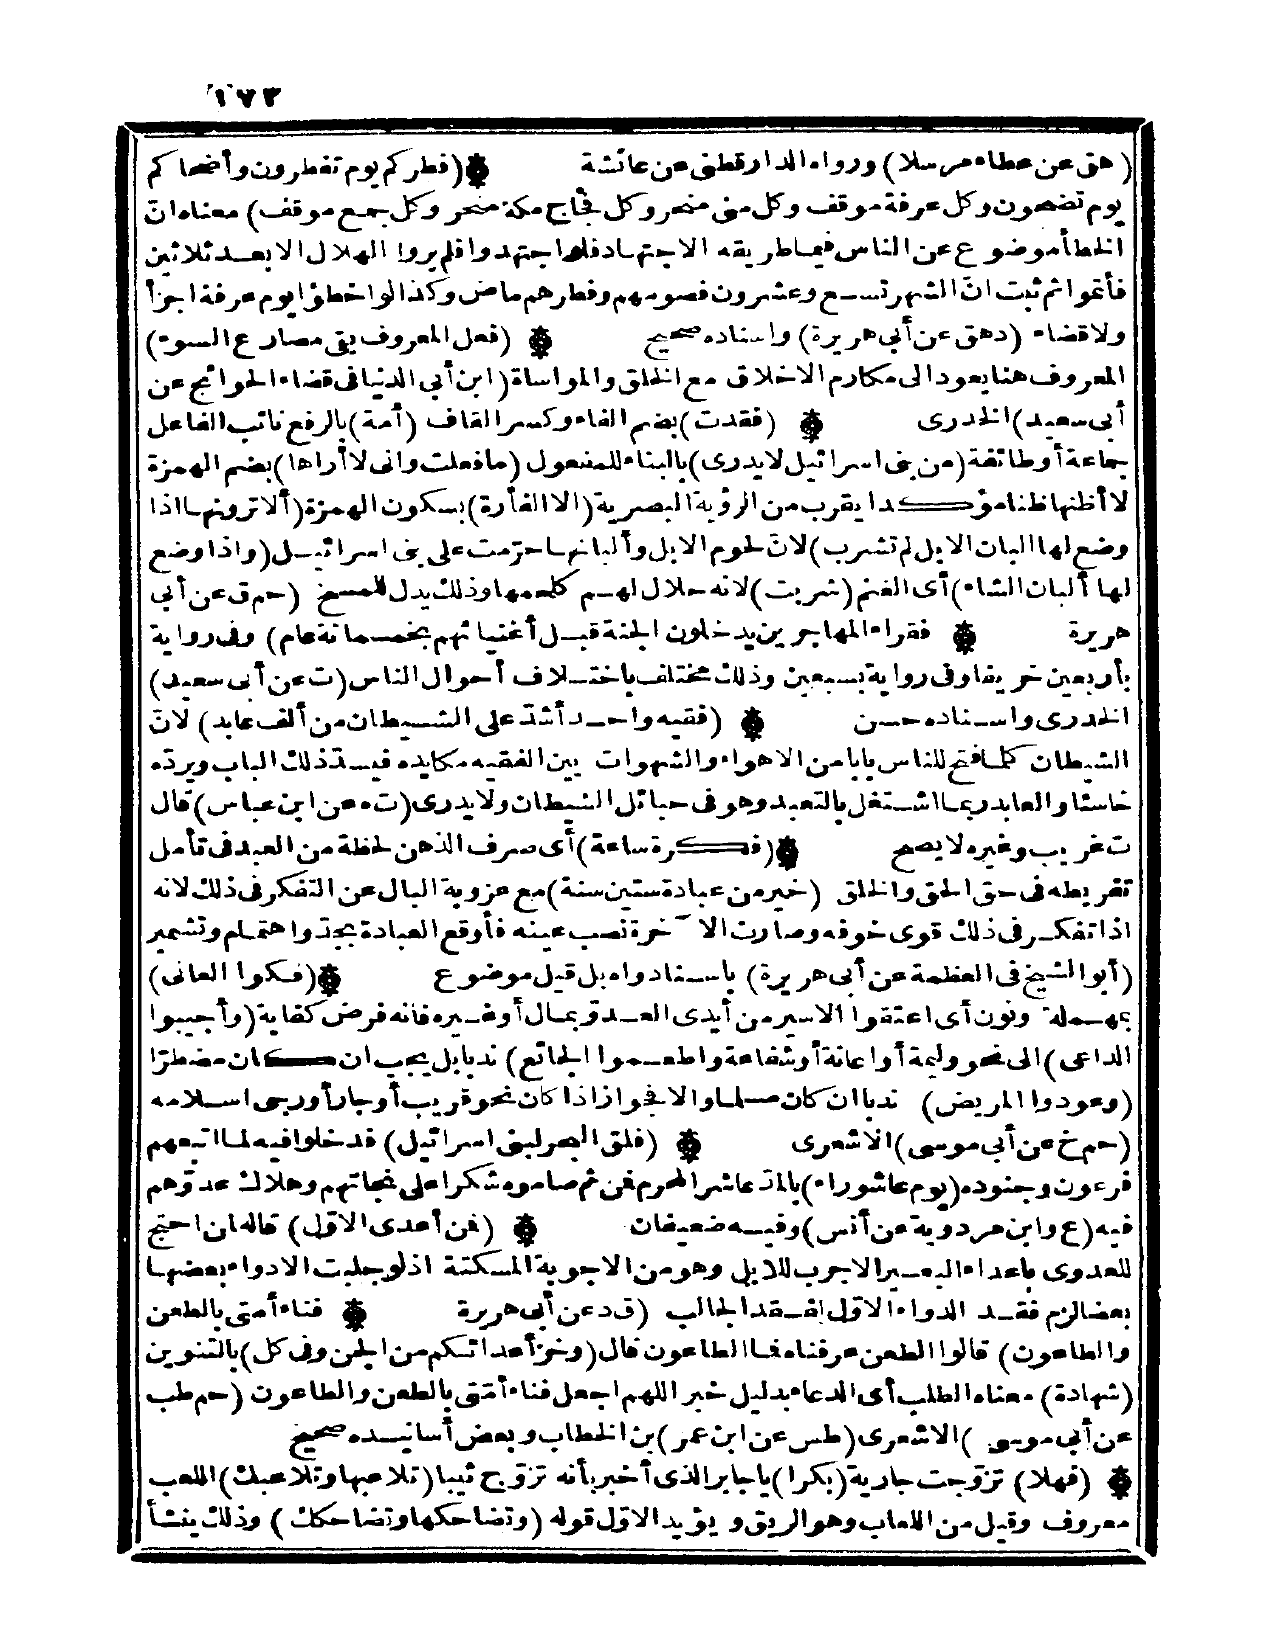 ١٧٣
(هق عن عطاء مرسلا) ورواه الدارقطنى عن عائشة ۞ (فطركم يوم تفطرون وأضحاكم
يوم تضحون وكل عرفة موقف وكل منى منحر وكل فجاج مكة منحر وكل جمع موقف) معناه انّ
الخطأ موضوع عن الناس فيما طريقه الاجتهاد فلو اجتهدوا فلم يروا الهلال الا بعد ثلاثين
فأتموا ثم ثبت انّ الشهر تسع وعشرون فصومهم وفطرهم ماض وكذا لو اخطؤا يوم عرفة اجزأ
ولا قضاء (دهق عن أبى هريرة) واسناده صحيح ۞ (فعل المعروف يقى مصارع السوء)
المعروف هنا يعود الى مكارم الاخلاق مع الخلق والمواساة (ابن أبى الدنيا فى قضاء الحوائج عن
أبى سعيد) الخدرى ۞ (فقدت) بضم الفاء وكسر القاف (أمة) بالرفع نائب الفاعل
جماعة أو طائفة (من بنى اسرائيل لا يدرى) بالبناء للمفعول (ما فعلت وانى لا أراها) بضم الهمزة
لا أظنها ظنا مؤكدا يقرب من الرؤية البصرية (الا الفأرة) بسكون الهمزة (ألا ترونها اذا
وضع لها البان الابل لم تشرب) لانّ لحوم الابل وألبانها حرّمت على بنى اسرائيل (واذا وضع
لها ألبان الشاء) أى الغنم (شربت) لانه حلال لهم كلحمها وذلك يدل للمسخ (حم ق عن أبى
هريرة ۞ فقراء المهاجرين يدخلون الجنة قبل أغنيائهم بخمسمائة عام) وفى رواية
بأربعين خريفا وفى رواية بسبعين وذلك مختلف باختلاف أحوال الناس (ت عن أبى سعيد)
الخدرى واسناده حسن ۞ (فقيه واحد أشدّ على الشيطان من ألف عابد) لانّ
الشيطان كلما فتح للناس بابا من الاهواء والشهوات بين الفقيه مكايده فيسدّ ذلك الباب ويردّه
خاسئا والعابد ربما اشتغل بالتعبد وهو فى حبائل الشيطان ولا يدرى (ت ه عن ابن عباس) قال
ت غريب وغيره لا يصح ۞ (فكرة ساعة) أى صرف الذهن لحظة من العبد فى تأمل
تفريطه فى حق الحق والخلق (خير من عبادة ستين سنة) مع عزوبة البال عن التفكر فى ذلك لانه
اذا تفكر فى ذلك قوى خوفه وصارت الآخرة نصب عينه فأوقع العبادة بجدّ واهتمام وتشمير
(أبو الشيخ فى العظمة عن أبى هريرة) باسناد واه بل قيل موضوع ۞ (فكوا العانى)
بمهملة ونون أى اعتقوا الاسير من أيدى العدوّ بمال أو غيره فانه فرض كفاية (وأجيبوا
الداعى) الى نحو وليمة أو اعانة أو شفاعة (واطعموا الجائع) ندبا بل يجب ان كان مضطرّا
(وعودوا المريض) ندبا ان كان مسلما والا فجوازا ذا كان نحو قريب أو جار أو رجى اسلامه
(حم خ عن أبى موسى) الاشعرى ۞ (فلق البحر لبنى اسرائيل) فدخلوا فيه لما اتبعهم
فرعون وجنوده (يوم عاشوراء) بالمدّ عاشر المحرم فمن ثم صاموه شكرا على نجاتهم وهلاك عدوّهم
فيه (ع وابن مردويه عن أنس) وفيه ضعيفان ۞ (فمن أعدى الاوّل) قاله لمن احتج
للعدوى باعداء البعير الاجرب للابل وهو من الاجوبة المسكتة اذ لو جلبت الادواء بعضها
بعضا لزم فقد الدواء الاوّل لفقد الجالب (ق د عن أبى هريرة ۞ فناء أمتى بالطعن
والطاعون) قالوا الطعن عرفناه فما الطاعون قال (وخز أعدائكم من الجن وفى كل) بالتنوين
(شهادة) معناه الطلب أى الدعاء بدليل خبر اللهم اجعل فناء أمّتى بالطعن والطاعون (حم طب
عن أبى موسى) الاشعرى (طس عن ابن عمر) بن الخطاب وبعض أسانيده صحيح
۞ (فهلا) تزوّجت جارية (بكرا) يا جابر الذى أخبر بأنه تزوّج ثيبا (تلاعبها وتلاعبك) اللعب
معروف وقيل من اللعاب وهو الريق ويؤيد الاوّل قوله (وتضاحكها وتضاحكك) وذلك ينشأ